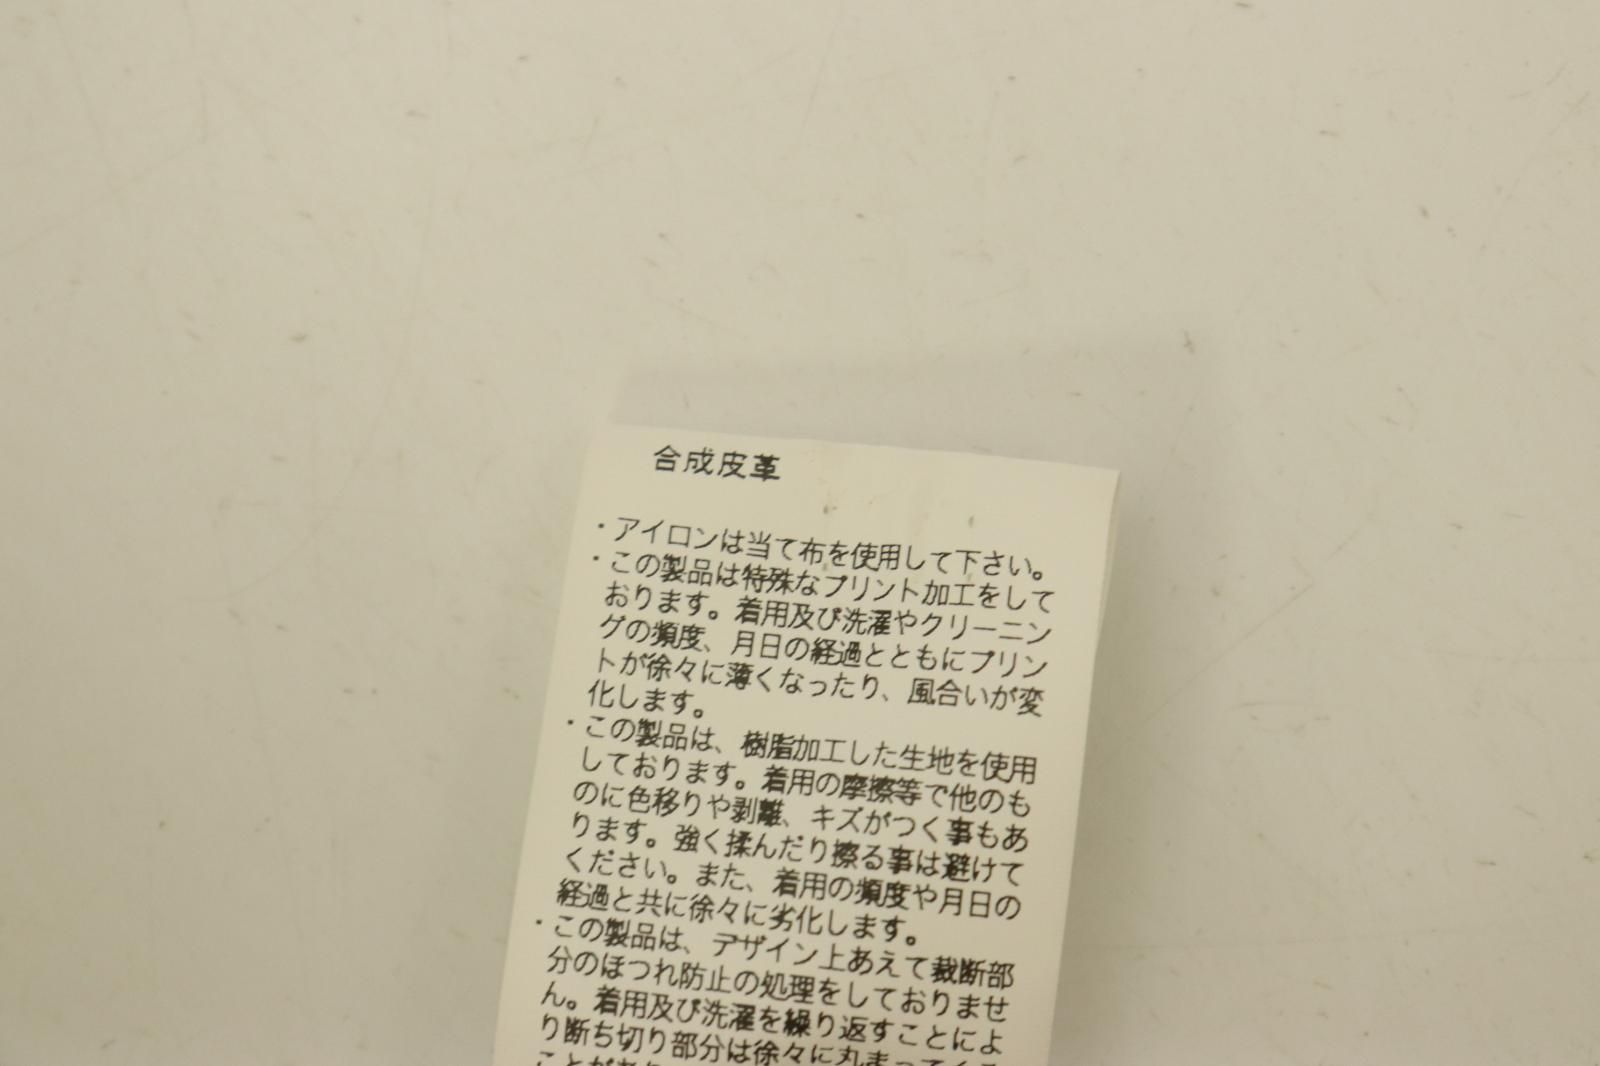 合成皮革
・アイロンは当て布を使用して下さい。
・この製品は特殊なプリント加工をして
おります。着用及び洗濯やクリーニン
グの頻度、月日の経過とともにプリン
トが徐々に薄くなったり、風合いが変
化します。
・この製品は、樹脂加工した生地を使用
しております。着用の摩擦等で他のも
のに色移りや剥離、キズがつく事もあ
ります。強く揉んだり擦る事は避けて
ください。また、着用の頻度や月日の
経過と共に徐々に劣化します。
・この製品は、デザイン上あえて裁断部
分のほつれ防止の処理をしておりませ
ん。着用及び洗濯を繰り返すことによ
り断ち切り部分は徐々に丸まって
ことが